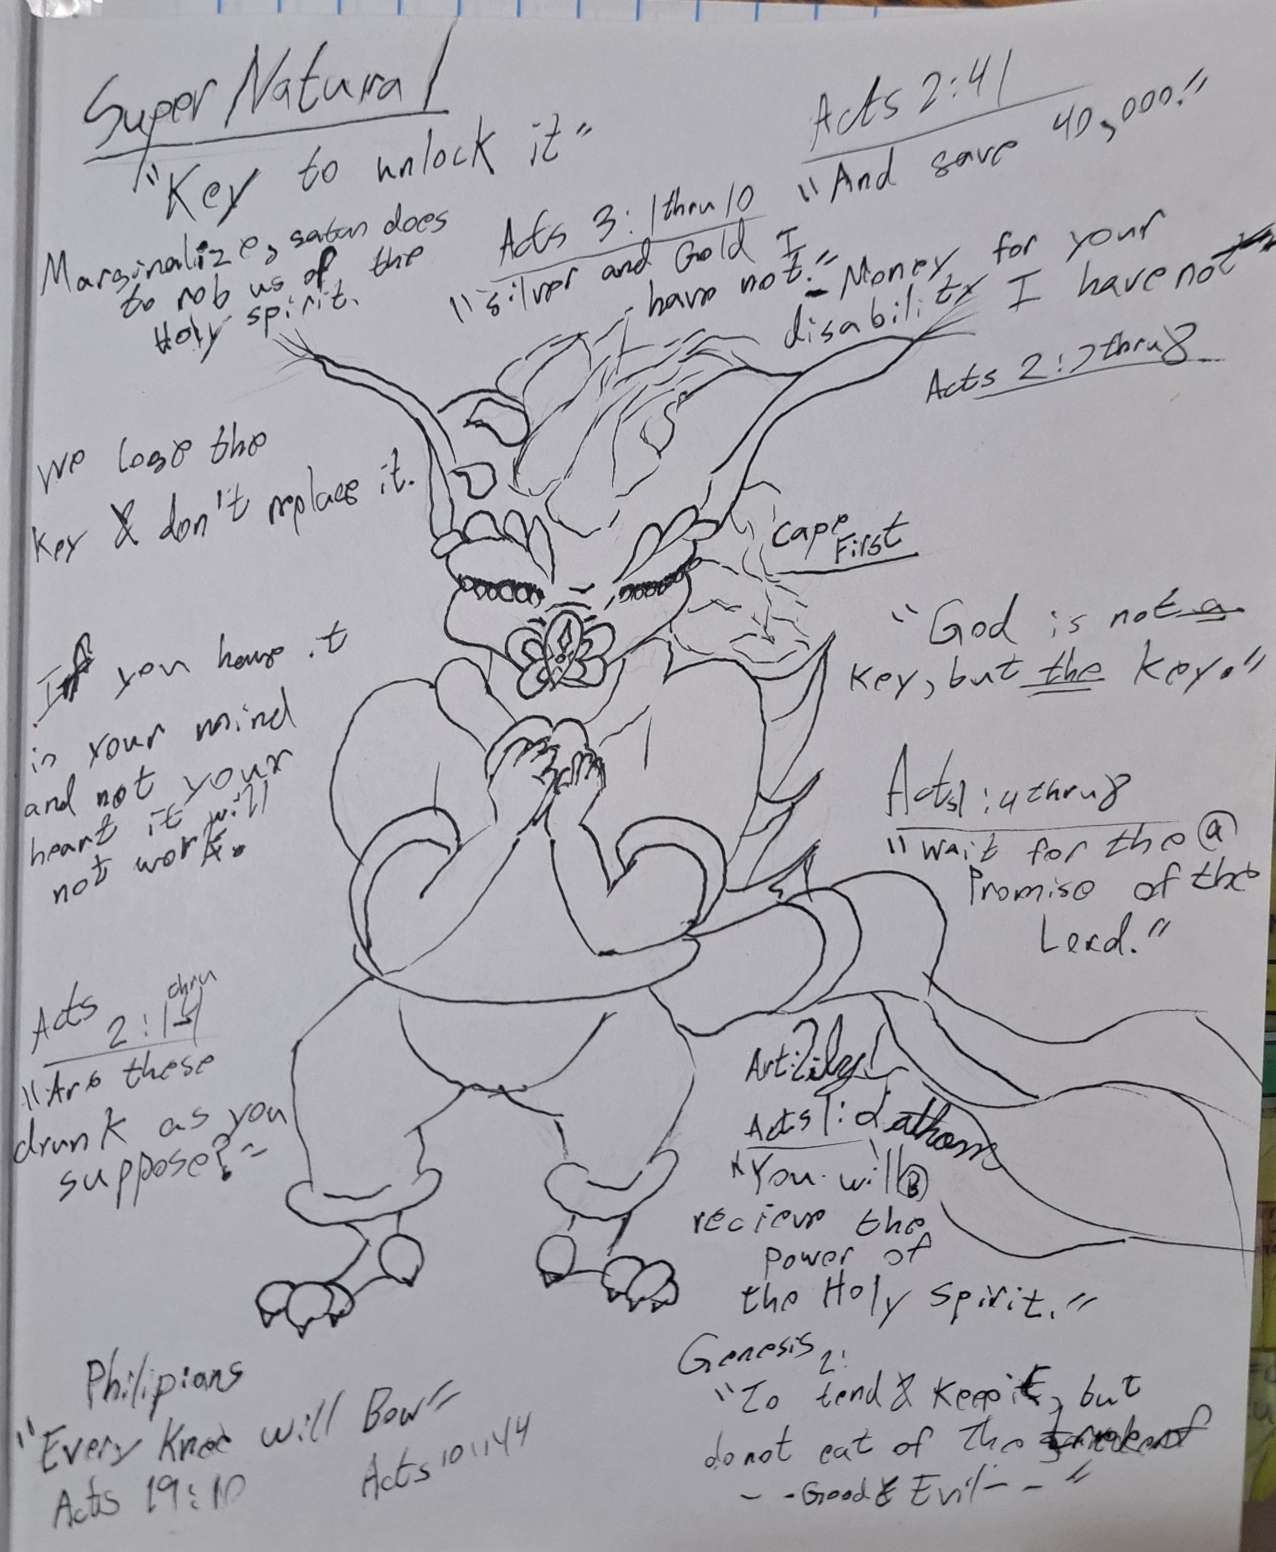 Super Natural
"Key to unlock it"
Marginalize, satan does
to rob us of the
Holy spirit.
Acts 3:1thru10
"silver and Gold I
have not."
Acts 2:41
"And save 40,000."
- Money for your
disability I have not
Acts 2:7thru8
We lose the
key & don't replace it.
Cape
First
"God is not a
key, but the key."
If you have it
in your mind
and not your
heart it will
not work.
Acts1:4thru8
"wait for the (a)
Promise of the
Lord."
Acts thru
2:1-4
"Are these
drunk as you
suppose?"
Acts1:
"You will (B)
recieve the
power of
the Holy spirit."
Philipians
"Every Knee will Bow"
Acts 19:10
Acts 10:44
Genesis 2:
"To tend & keep it, but
do not eat of the
--Good & Evil--"